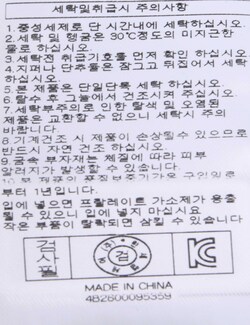 세탁및취급시 주의사항
1.중성세제로 단 시간내에 세탁하십시오.
2.세탁 및 헹굼은 30℃정도의 미지근한
물로 하십시오.
3.세탁전 취급기호를 먼저 확인 하십시오
4.지퍼나 단추를은 잠그고 뒤집어서 세탁
하십시오.
5.본 제품은 단일단독 세탁 하십시오.
6.탈수 후 그늘에서 건조시켜 주십시오.
7.세탁부주의로 인한 탈색 및 오염된
제품은 교환할 수 없으니 세탁시 주의
바랍니다.
8.기계건조 시 제품이 손상될수 있으므로
반드시 자연 건조 하십시오.
9.금속 부자재는 체질에 따라 피부
알러지가 발생할 수 있습니다.
10.본 제품의 품질보증기간은 구입일로
부터 1년입니다.
입에 넣으면 프탈레이트 가소제가 용출
될 수 있으니 입에 넣지 마십시요
작은 부품이 탈락되면 삼킬 수 있습니다
검사필
검
KC
MADE IN CHINA
4B2600095359